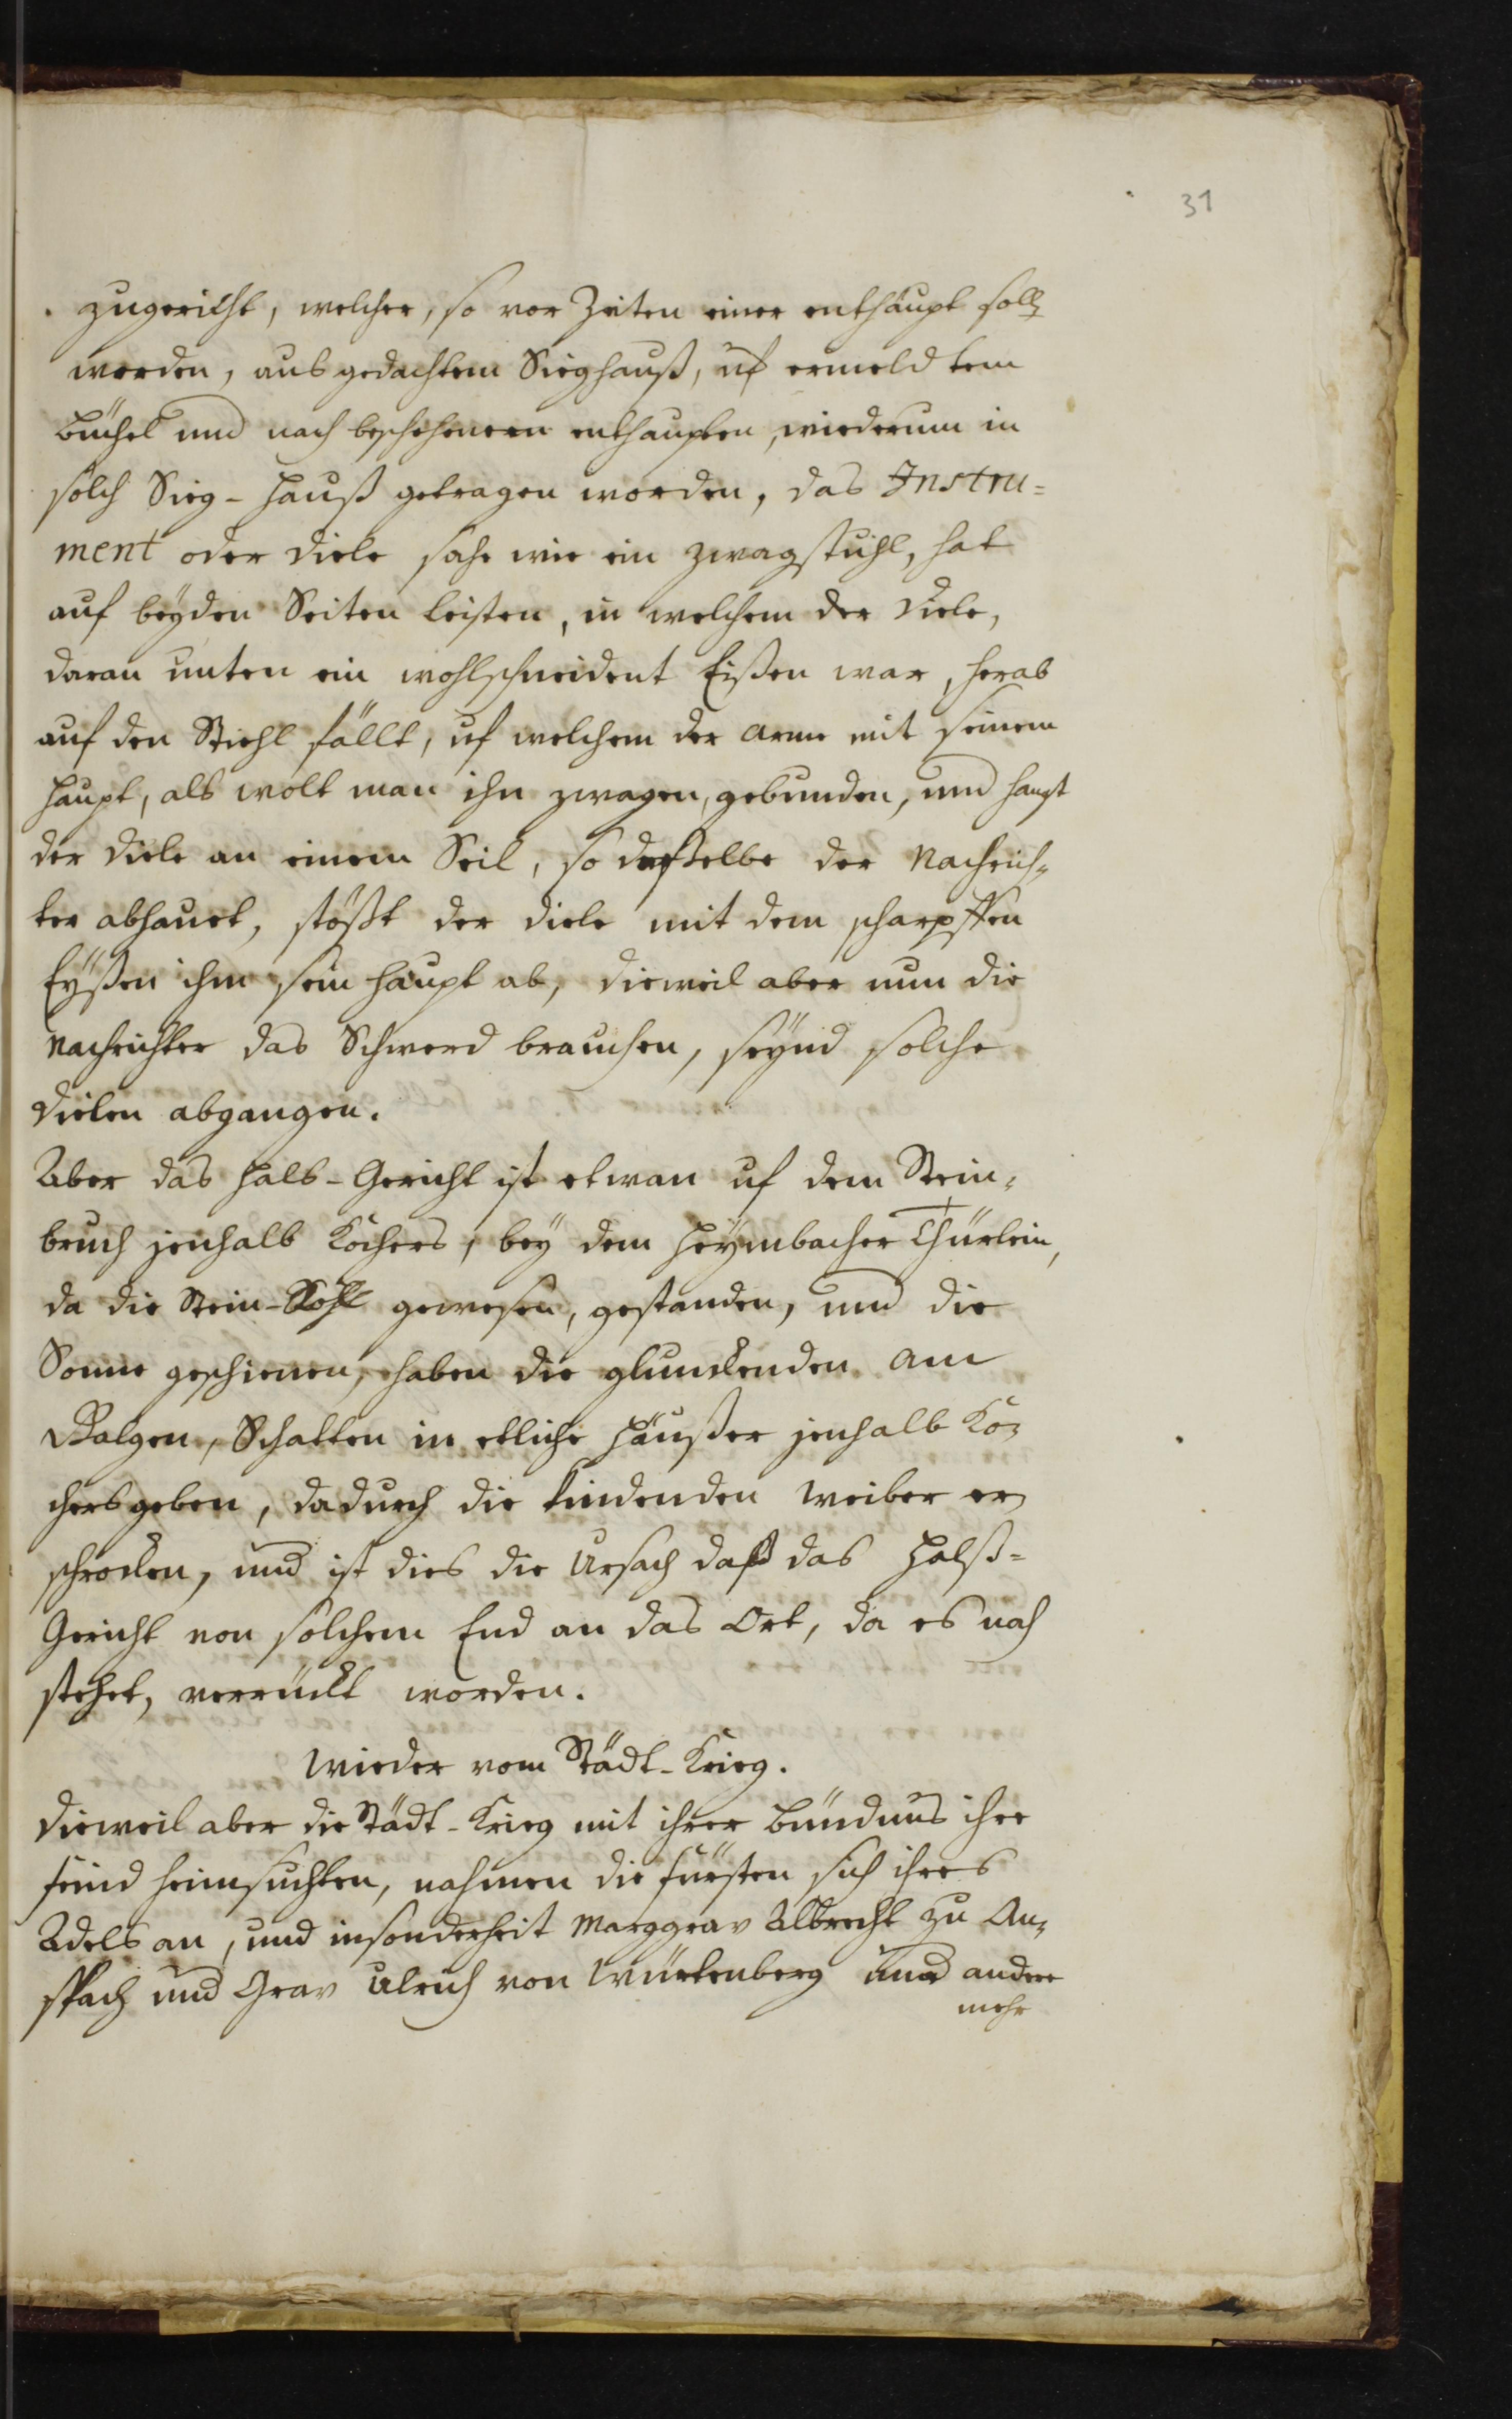 31
zugericht, welcher, so vor Zeiten einer enthaupt soll
werden, aus gedachtem Sieghauß, uf ermeldtem
Büchel und nach beschehenem enthaupten, wiederum in
solch Sieg-Hauß getragen worden, das Instru=
ment oder diele sahe wie ein zwagstuhl, hat
auf beyden Seiten leisten, in welchem der diele,
daran unten ein wohlschneident Eißen war, herab
auf den Stuhl fällt, uf welchem der arme mit seinem
Haupt, als wolt man ihn zwagen, gebunden, und hangt
der diele an einem Seil, so dasselbe der Nachrich-
ter abhauet, stößt der diele mit dem scharpffen
Eyßen ihm sein Haupt ab, dieweil aber nun die
Nachrichter das Schwerd brauchen, seynd solche
dielen abgangen.
Aber das Hals-Gericht ist etwan uf dem Stein-
bruch jenhalb Kochers, bey dem Heymbacher Thürlein,
da die Stein- gewesen, gestanden, und die
Sonne geschienen, haben die glunckenden am
Galgen, Schatten in etliche Häußer jenhalb Ko-
chers geben, dadurch die kindenden Weiber er-
schrocken, und ist dies die Ursach daß das Halß=
Gericht von solchem End an das Ort, da es noch
stehet, verruckt worden.
Wieder vom Städt-Krieg.
Dieweil aber die Städt-Krieg mit ihrer Bündnus ihre
feind heimsuchten, nahmen die fürsten sich ihres
Adels an, und insonderheit Marggrav Albrecht zu An-
spach und Grav Ulrich von Würtenberg und andere
mehr